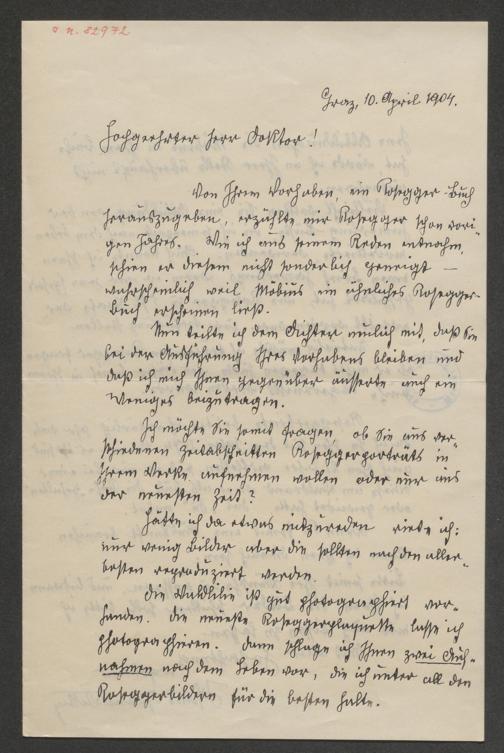 J. N. 82972
Graz, 10. April 1904.
Hochgeehrter Herr Doktor!
Von Ihrem Vorhaben, ein Rosegger-Buch
herauszugeben, erzählte mir Rosegger schon vori-
gen Jahres. Wie ich aus seinem Reden entnahm,
schien er diesem nicht sonderlich geneigt —
wahrscheinlich weil Möbius ein ähnliches Rosegger-
buch erscheinen ließ.
Nun teilte ich dem Dichter neulich mit, daß Sie
bei der Ausführung Ihres Vorhabens bleiben und
daß ich mich Ihnen gegenüber äusserte auch ein
Weniges beizutragen.
Ich möchte Sie somit fragen, ob Sie aus ver-
schiedenen Zeitabschnitten Roseggerporträts in
Ihrem Werke aufnehmen wollen oder nur aus
der neuesten Zeit?
Hätte ich da etwas mitzureden riete ich:
nur wenig Bilder aber die sollten nach den aller-
besten reproduziert werden.
Die Waldlilie ist gut photographiert vor-
handen. Die neueste Roseggerplaquette lasse ich
photographieren. Dann schlage ich Ihnen zwei Auf-
nahmen nach dem Leben vor, die ich unter all den
Roseggerbildern für die besten halte.